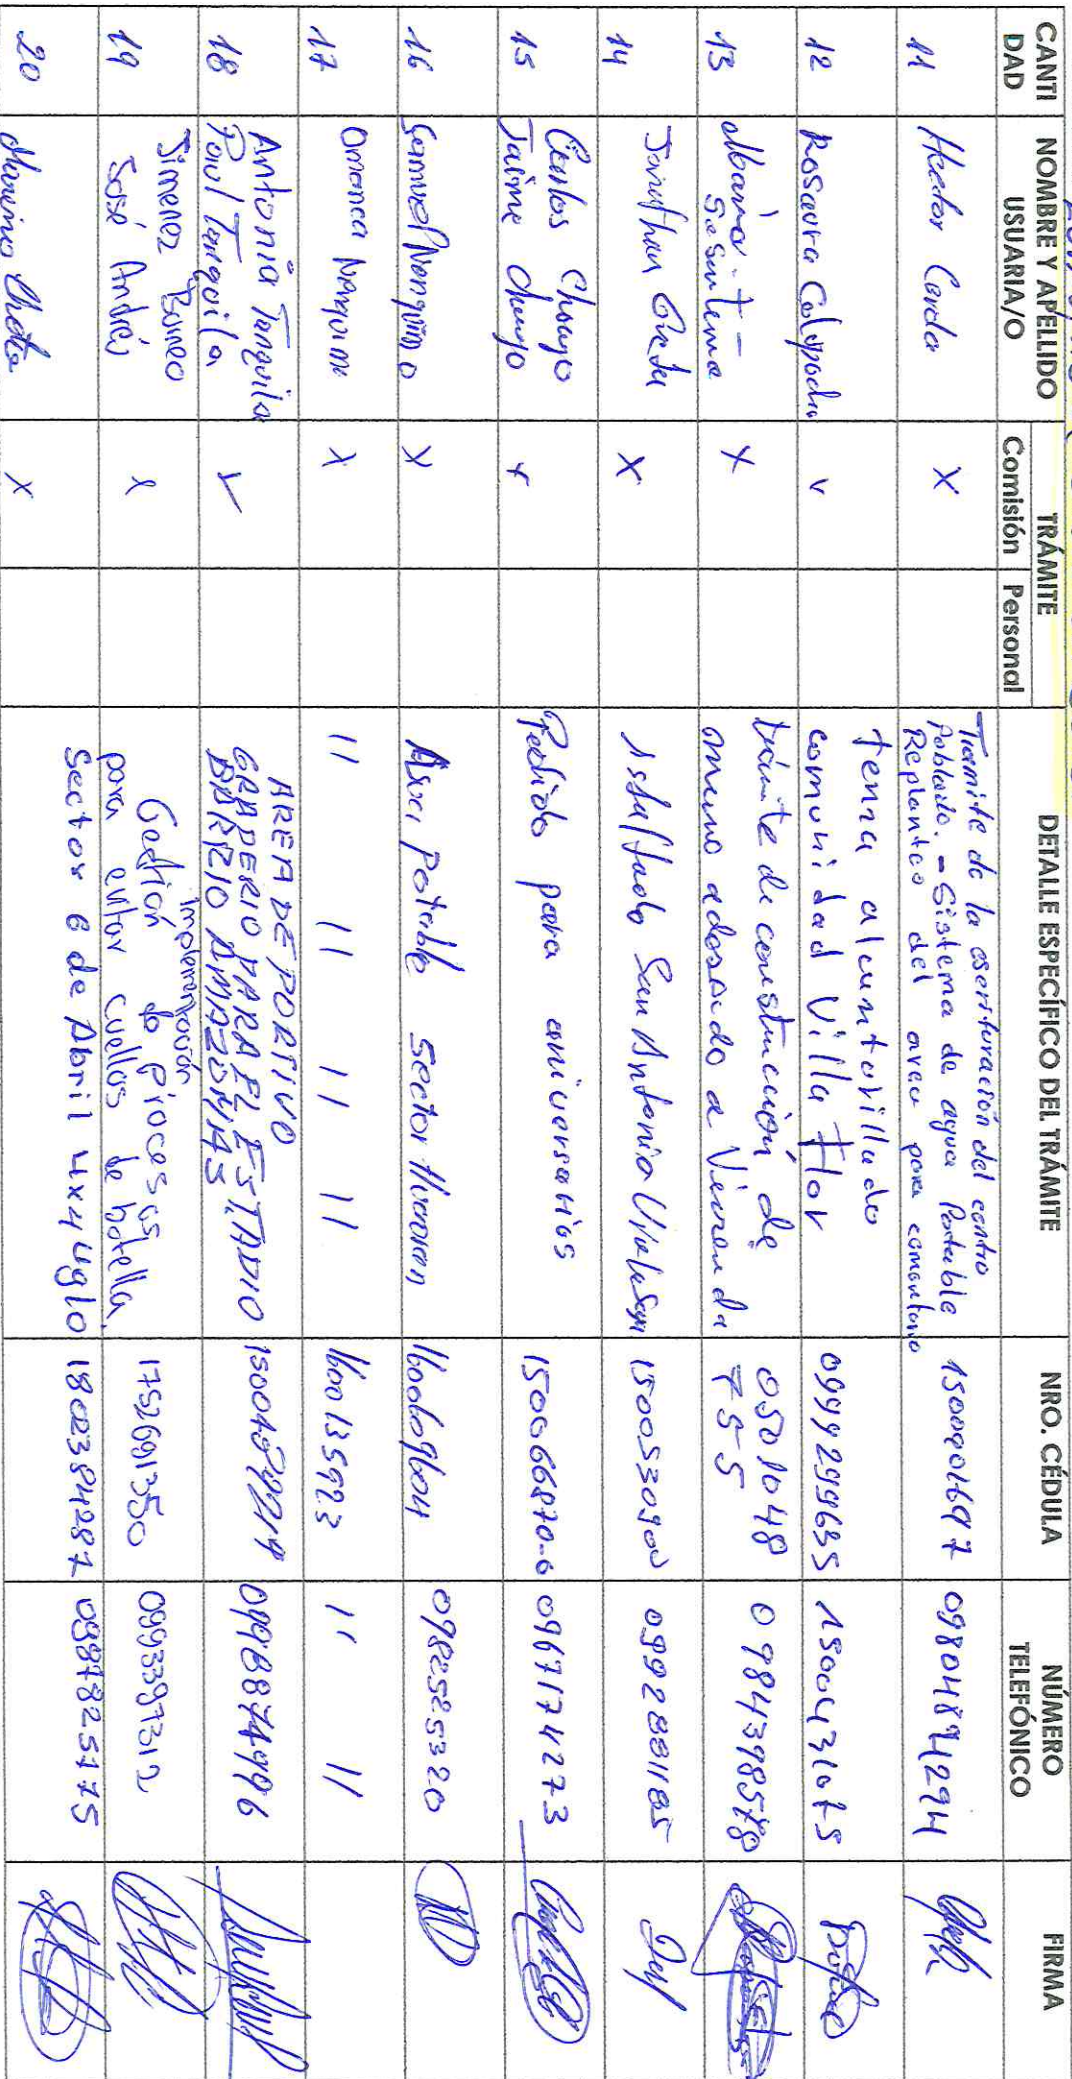 CANTI DAD | NOMBRE Y APELLIDO USUARIA/O | TRÁMITE Comisión Personal | DETALLE ESPECÍFICO DEL TRÁMITE | NRO. CÉDULA | NÚMERO TELEFÓNICO | FIRMA
11 | Hector Cerda | X | Tramite de la escrituración del centro
Poblado. - Sistema de agua Potable
Replanteo del area para | 0980487294
12 | Rosaura | v | Tema alcantarillado
comunidad Villa Flor | 0999299635
13 | X | trámite de construcción de
muro adosado a Vivienda | 0501048
755 | 0984398578
14 | Jonathan | X | San Antonio | 1500530900 | 0992881185
15 | Carlos Chongo
Jaime Chongo | x | Pedido para aniversarios | 150066870-6 | 0967174273
16 | X | Agua potable Sector | 1600609604 | 0982525320
17 | X | 11 11 11 11 | 1600135923 | 11 11
18 | Antonia Tanguila
Paul Tanguila | V | AREA DEPORTIVO
GRADERIO PARA EL ESTADIO
BARRIO AMAZONAS | 0998874996
19 | Jimenez Burneo
José Andrés | x | Gestión implementación de Procesos
para evitar cuellos de botella, | 1752691350 | 0993397312
20 | X | Sector 6 de Abril 4x4 uglo | 1802384287 | 0987825175